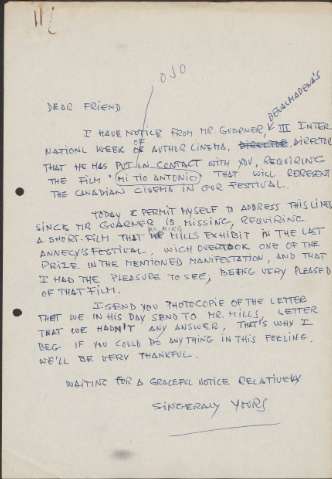 OJO
DEAR FRIEND
BENALMADENA'S
I HAVE NOTICE FROM MR. GUARNER, III INTER
NATIONL WEEK OF AUTHOR CINEMA, DIRECTOR DIRECTOR
THAT HE HAS PUT IN CONTACT WITH YOU, REQUIRING
THE FILM "MI TIO ANTONIO" THAT WILL REPRESENT
THE CANADIAN CINEMA IN OUR FESTIVAL.
TODAY I PERMIT MYSELF TO ADDRESS THIS LINES
SINCE MR GUARNER IS MISSING, REQUIRING
A SHORT-FILM THAT MR MILLS EXHIBIT IN THE LAST
ANNECY'S FESTIVAL. WICH OVERTOOK ONE OF THE
PRIZE IN THE MENTIONED MANIFESTATION, AND THAT
I HAD THE PLEASURE TO SEE, BEING VERY PLEASED
OF THAT FILM.
I SEND YOU PHOTOCOPIE OF THE LETTER
THAT WE IN HIS DAY SEND TO MR. MILLS, LETTER
THAT WE HADN'T ANY ANSWER, THAT'S WHY I
BEG IF YOU COULD DO ANYTHING IN THIS FEELING.
WE'LL BE VERY THANKFUL.
WAITING FOR A GRACEFUL NOTICE RELATIVELY
SINCERALY YOURS